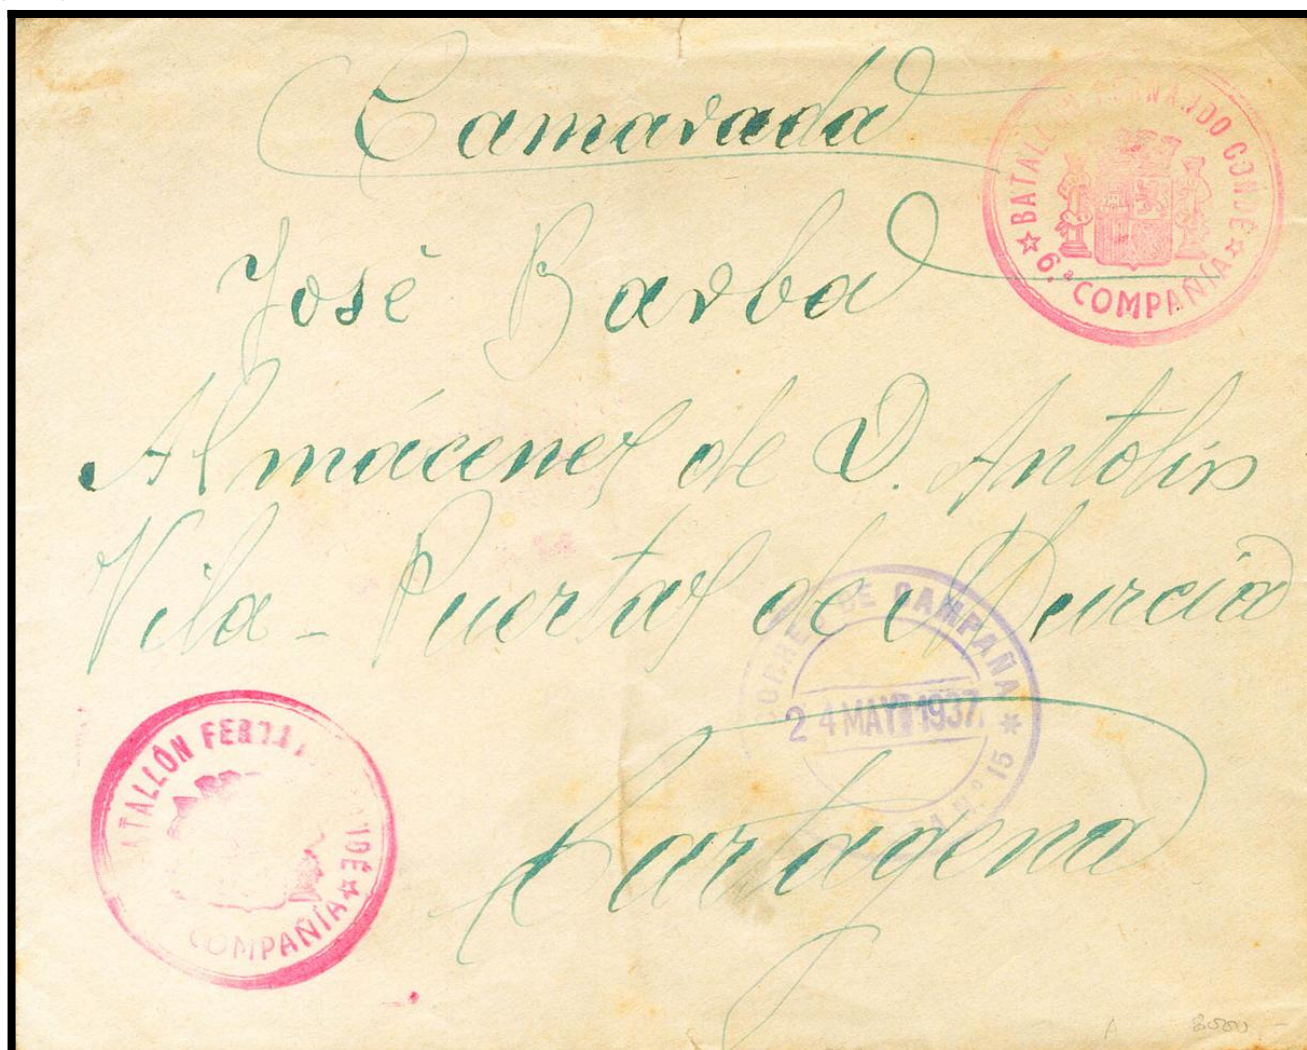 Camarada
BATALLÓN FERNANDO CONDE
6.ª COMPAÑÍA
José Barba
Almácenes de D. Antolín
Vila - Puertas de Murcia
CORREO DE CAMPAÑA
24 MAYO 1937
Nº 15
Cartagena
BATALLÓN
COMPAÑÍA
A